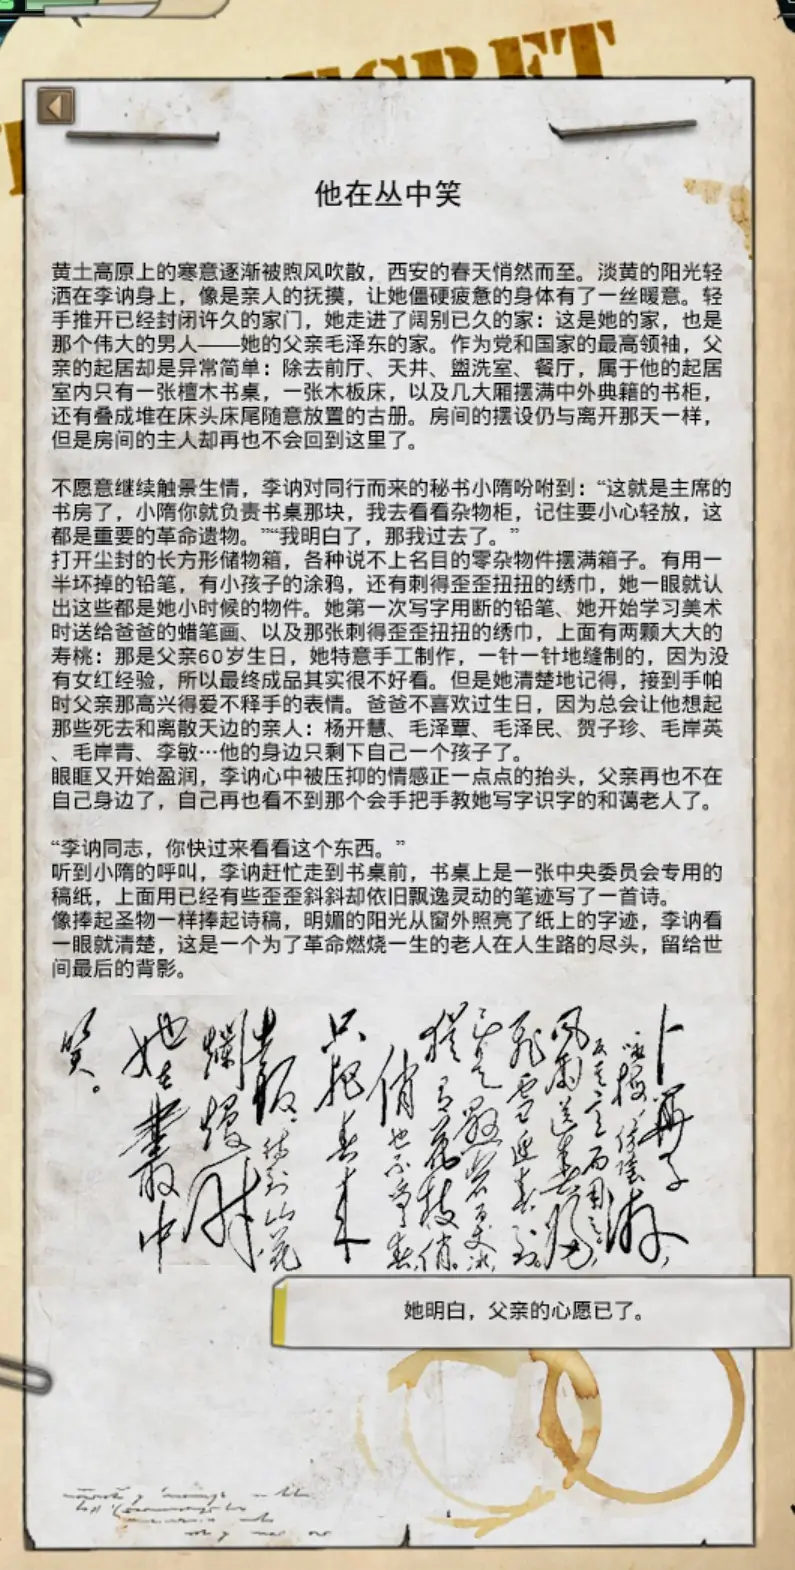 SECRET
他在丛中笑
黄土高原上的寒意逐渐被煦风吹散，西安的春天悄然而至。淡黄的阳光轻
洒在李讷身上，像是亲人的抚摸，让她僵硬疲惫的身体有了一丝暖意。轻
手推开已经封闭许久的家门，她走进了阔别已久的家：这是她的家，也是
那个伟大的男人——她的父亲毛泽东的家。作为党和国家的最高领袖，父
亲的起居却是异常简单：除去前厅、天井、盥洗室、餐厅，属于他的起居
室内只有一张檀木书桌，一张木板床，以及几大厢摆满中外典籍的书柜，
还有叠成堆在床头床尾随意放置的古册。房间的摆设仍与离开那天一样，
但是房间的主人却再也不会回到这里了。
不愿意继续触景生情，李讷对同行而来的秘书小隋吩咐到：“这就是主席的
书房了，小隋你就负责书桌那块，我去看看杂物柜，记住要小心轻放，这
都是重要的革命遗物。”“我明白了，那我过去了。”
打开尘封的长方形储物箱，各种说不上名目的零杂物件摆满箱子。有用一
半坏掉的铅笔，有小孩子的涂鸦，还有刺得歪歪扭扭的绣巾，她一眼就认
出这些都是她小时候的物件。她第一次写字用断的铅笔、她开始学习美术
时送给爸爸的蜡笔画、以及那张刺得歪歪扭扭的绣巾，上面有两颗大大的
寿桃：那是父亲60岁生日，她特意手工制作，一针一针地缝制的，因为没
有女红经验，所以最终成品其实很不好看。但是她清楚地记得，接到手帕
时父亲那高兴得爱不释手的表情。爸爸不喜欢过生日，因为总会让他想起
那些死去和离散天边的亲人：杨开慧、毛泽覃、毛泽民、贺子珍、毛岸英
、毛岸青、李敏…他的身边只剩下自己一个孩子了。
眼眶又开始盈润，李讷心中被压抑的情感正一点点的抬头，父亲再也不在
自己身边了，自己再也看不到那个会手把手教她写字识字的和蔼老人了。
“李讷同志，你快过来看看这个东西。”
听到小隋的呼叫，李讷赶忙走到书桌前，书桌上是一张中央委员会专用的
稿纸，上面用已经有些歪歪斜斜却依旧飘逸灵动的笔迹写了一首诗。
像捧起圣物一样捧起诗稿，明媚的阳光从窗外照亮了纸上的字迹，李讷看
一眼就清楚，这是一个为了革命燃烧一生的老人在人生路的尽头，留给世
间最后的背影。
卜算子
咏梅
风雨送春归，
飞雪迎春到。
已是悬崖百丈冰，
犹有花枝俏。
俏也不争春，
只把春来
报。待到山花
烂漫时
她在丛中
笑。
她明白，父亲的心愿已了。